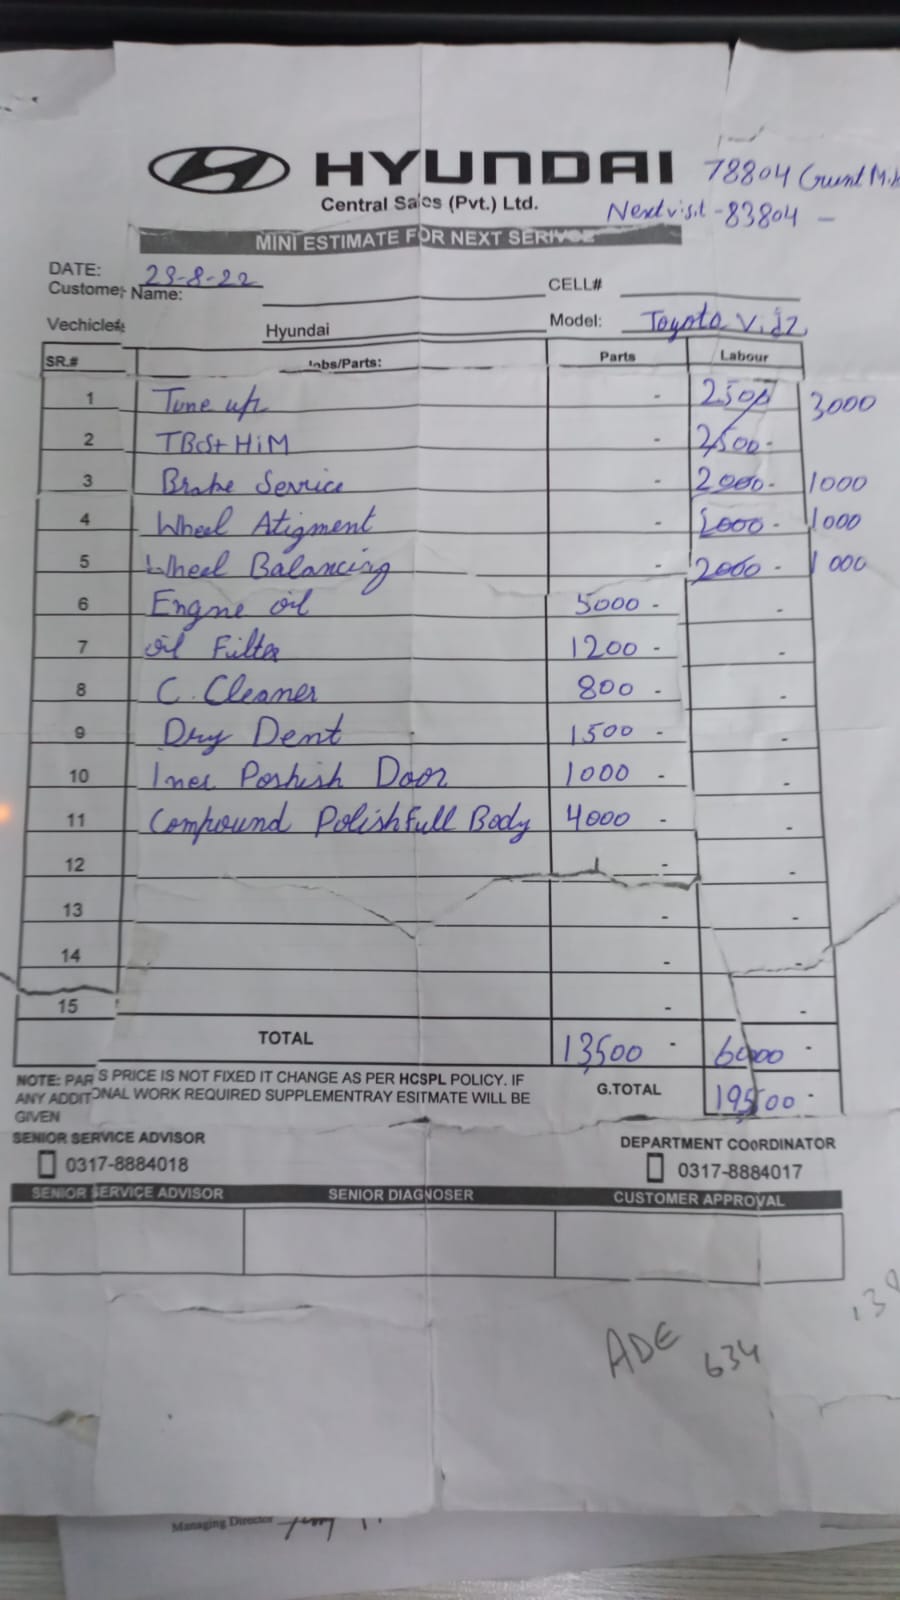 HYUNDAI
78804 Crunt Mil
Central Sales (Pvt.) Ltd.
Next visit - 83804 -
MINI ESTIMATE FOR NEXT SERIVCE
DATE: 23-8-22
Customer Name: CELL#
Vechicle#: Hyundai Model: Toyota Vidz
SR.# Jobs/Parts: Parts Labour
1 Tune up - 2500 3000
2 TBS+HiM - 2500-
3 Brake Service - 2000- 1000
4 Wheel Atigment - 1000
5 Wheel Balancing - 2000 - 1000
6 Engne oil 5000 - -
7 oil Filter 1200 - -
8 C. Cleaner 800 - -
9 Dry Dent 1500 - -
10 Iner Poshish Door 1000 - -
11 Compound Polish Full Body 4000 - -
12 - -
13 - -
14 - -
15 - -
TOTAL 13500 - 6000 -
NOTE: PARTS PRICE IS NOT FIXED IT CHANGE AS PER HCSPL POLICY. IF
ANY ADDITIONAL WORK REQUIRED SUPPLEMENTRAY ESITMATE WILL BE
GIVEN
G.TOTAL 19500 -
SENIOR SERVICE ADVISOR DEPARTMENT COORDINATOR
0317-8884018 0317-8884017
SENIOR SERVICE ADVISOR SENIOR DIAGNOSER CUSTOMER APPROVAL
ADE 634
Managing Director